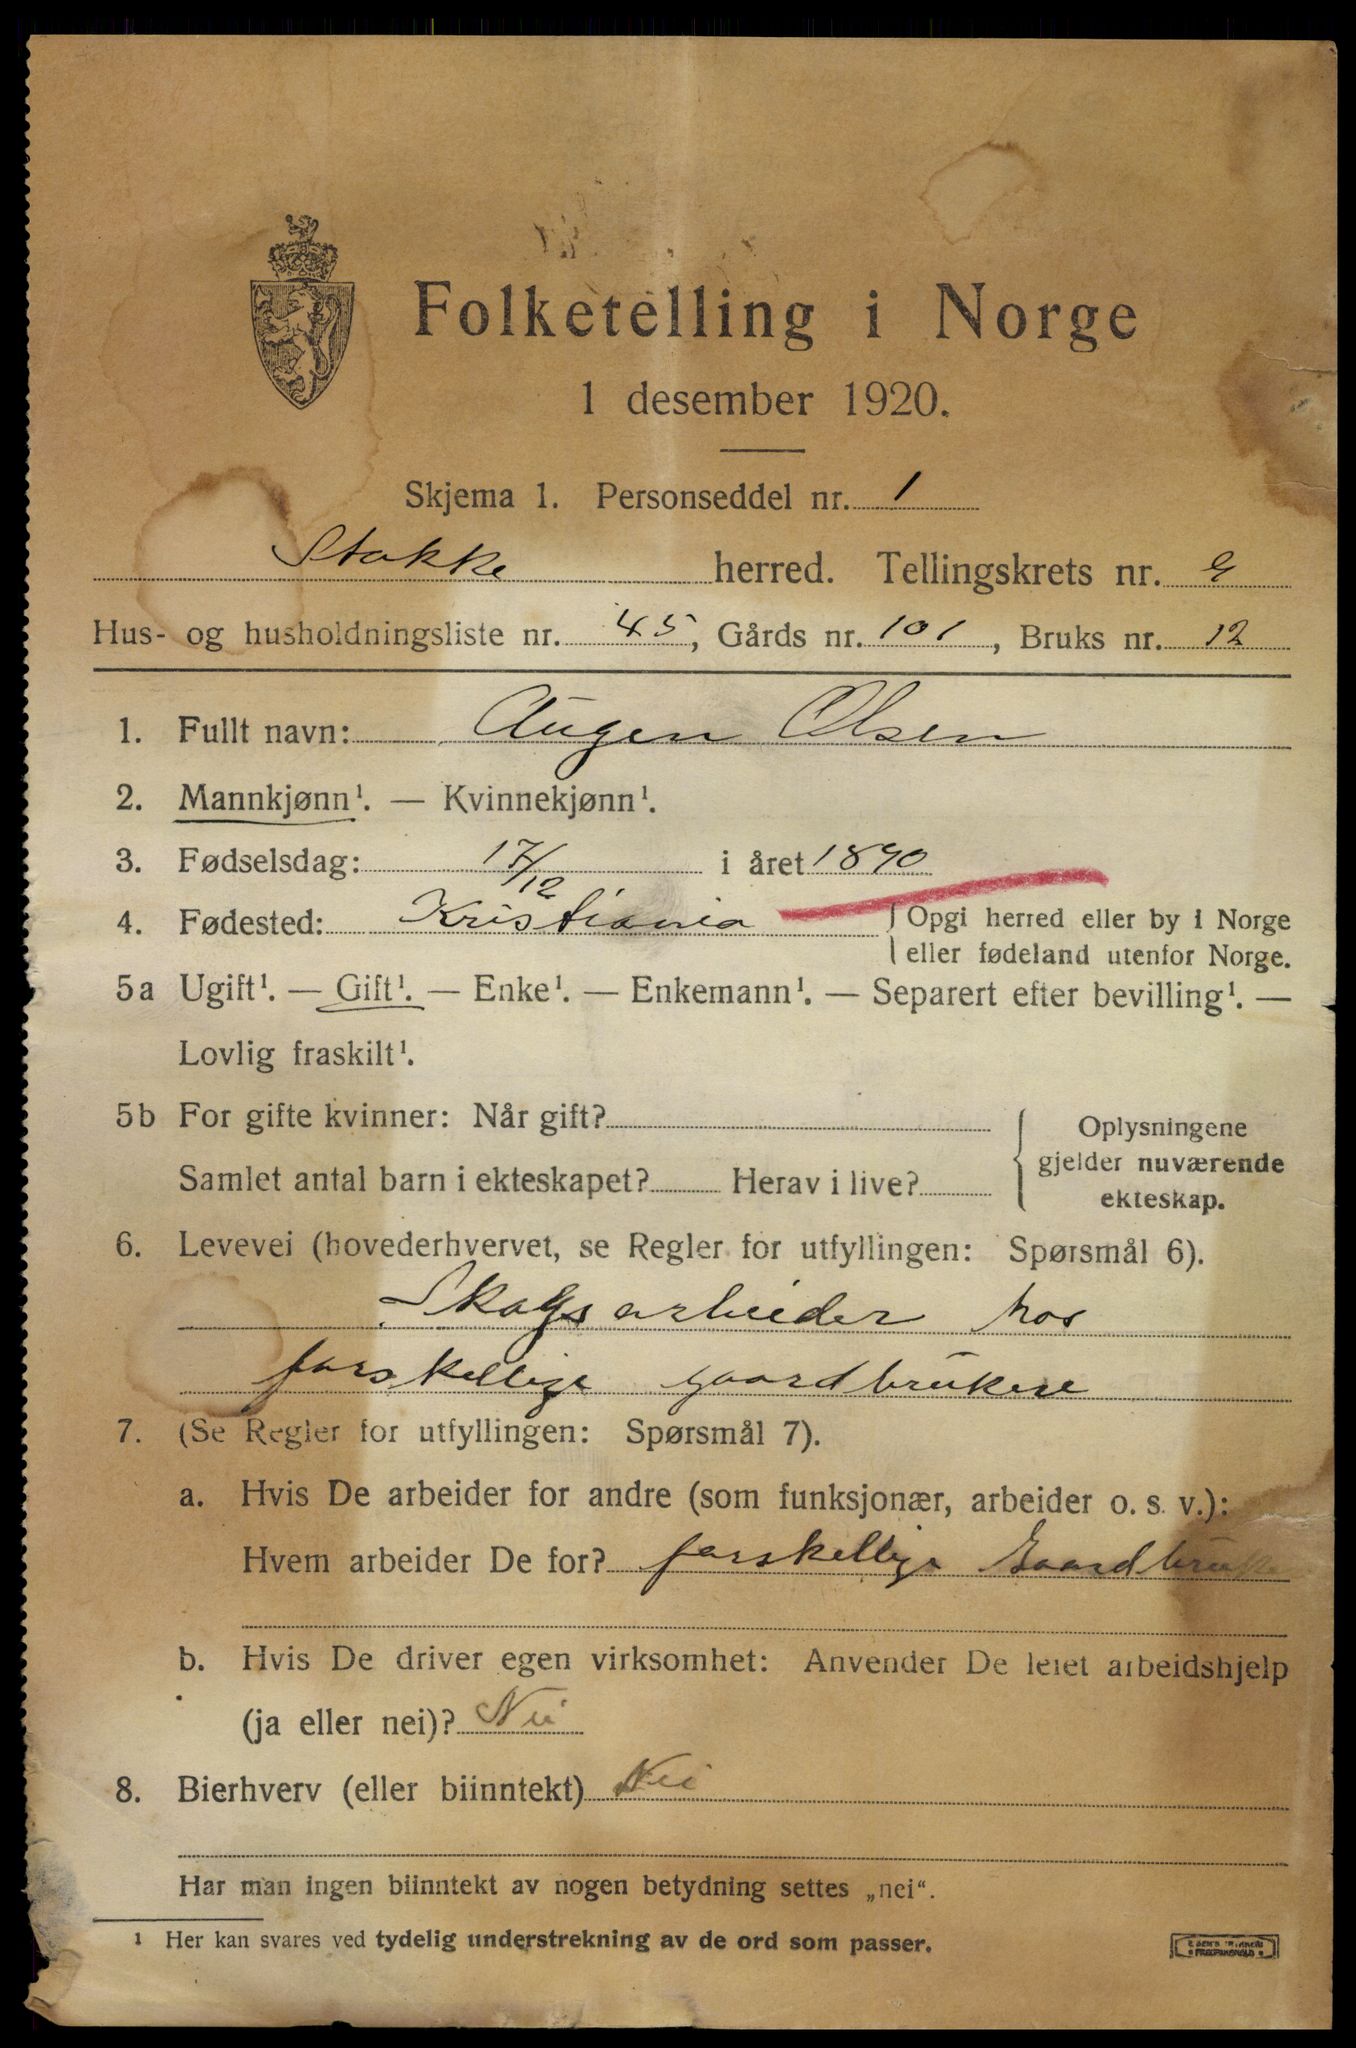 Folketelling i Norge
1 desember 1920.
Skjema 1. Personseddel nr. 1
Stokke herred. Tellingskrets nr. 9
Hus- og husholdningsliste nr. 45, Gårds nr. 101, Bruks nr. 12
1. Fullt navn: Augen Olsen
2. Mannkjønn¹. — Kvinnekjønn¹.
3. Fødselsdag: 17/12 i året 1890
4. Fødested: Kristiania { Opgi herred eller by i Norge
eller fødeland utenfor Norge.
5a Ugift¹. — Gift¹. — Enke¹. — Enkemann¹. — Separert efter bevilling¹. —
Lovlig fraskilt¹.
5b For gifte kvinner: Når gift?
Samlet antal barn i ekteskapet? Herav i live?
Oplysningene
gjelder nuværende
ekteskap.
6. Levevei (hovederhvervet, se Regler for utfyllingen: Spørsmål 6).
Skogsarbeider hos
forskellige gaardbrukere
7. (Se Regler for utfyllingen: Spørsmål 7).
a. Hvis De arbeider for andre (som funksjonær, arbeider o. s. v.):
Hvem arbeider De for? forskellige
b. Hvis De driver egen virksomhet: Anvender De leiet arbeidshjelp
(ja eller nei)? Nei
8. Bierhverv (eller biinntekt) Nei
Har man ingen biinntekt av nogen betydning settes „nei“.
¹ Her kan svares ved tydelig understrekning av de ord som passer.